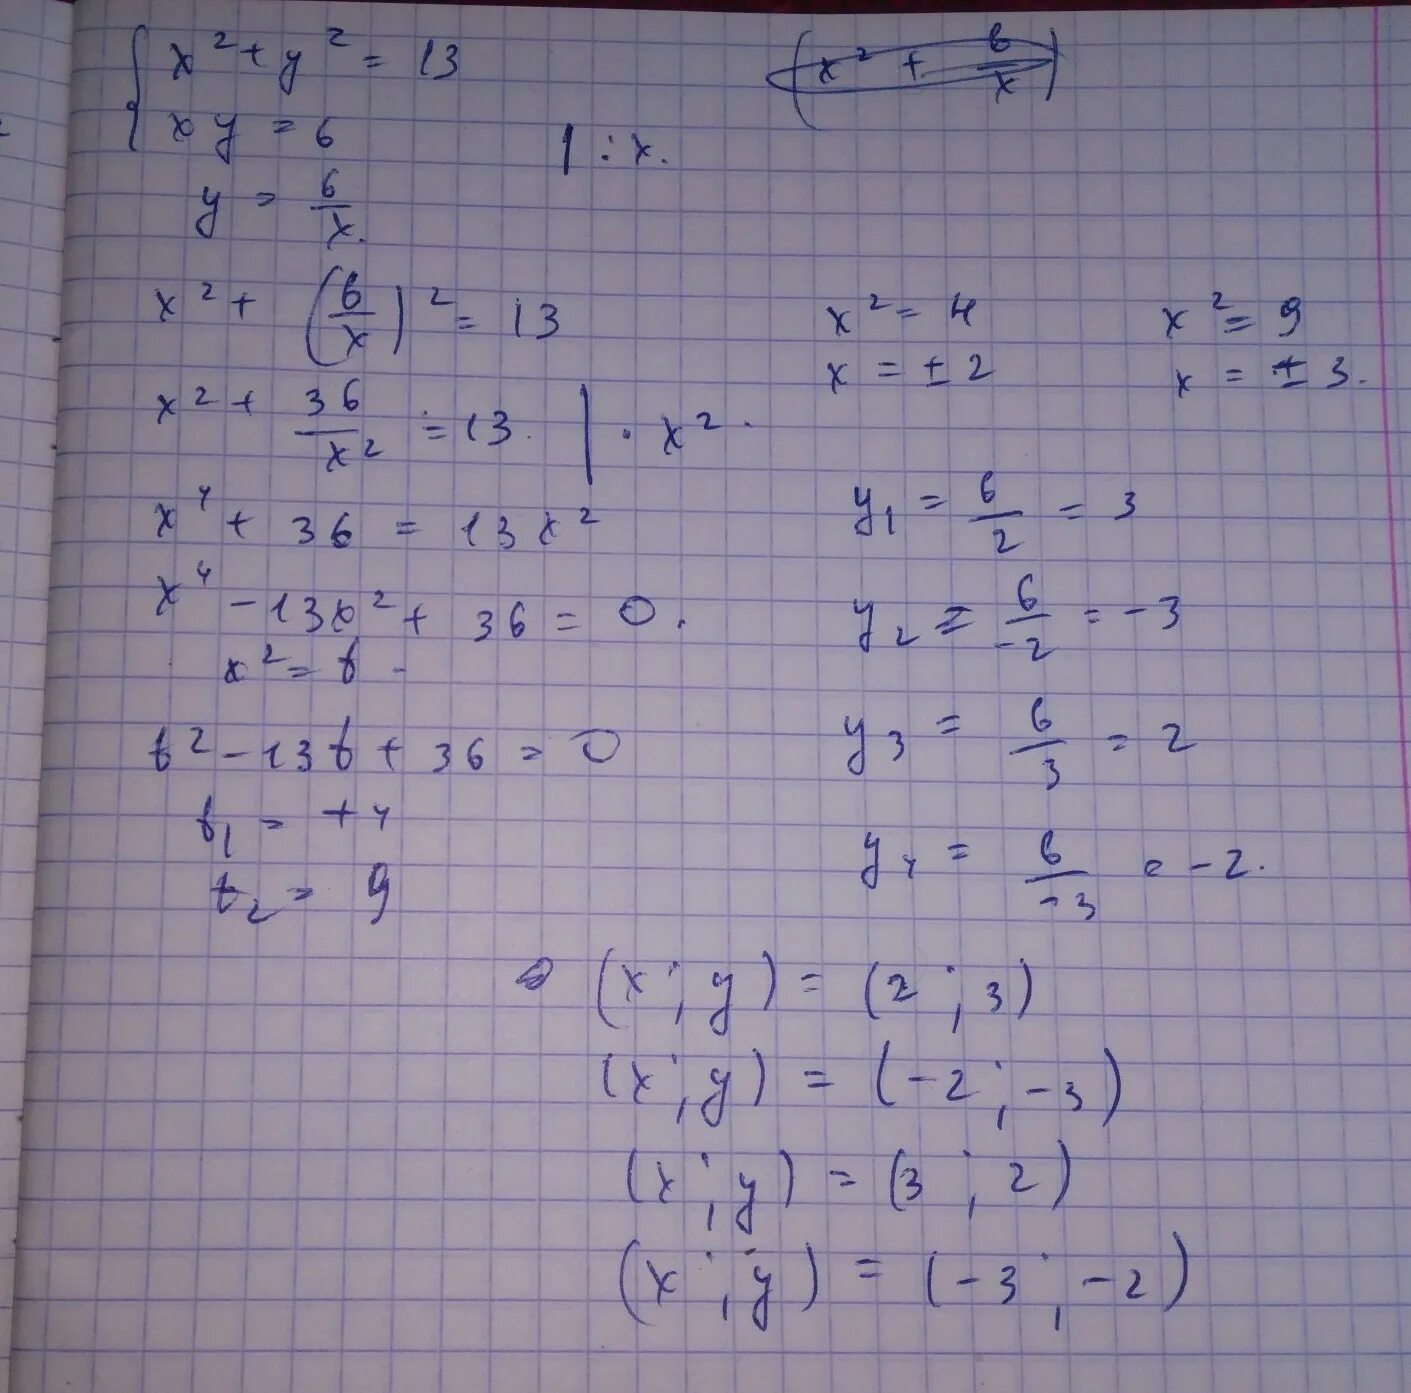 x² + y² = 13
xy = 6 | : x.
y = 6/x.
x² + (6/x)² = 13
x² + 36/x² = 13. | · x².
x⁴ + 36 = 13x²
x⁴ - 13x² + 36 = 0.
x² = t -
t² - 13t + 36 = 0
t₁ = +4
t₂ = 9
(x² + 6/x)
x² = 4
x = ± 2
x² = 9
x = ± 3.
y₁ = 6/2 = 3
y₂ = 6/-2 = -3
y₃ = 6/3 = 2
y₄ = 6/-3 = -2.
(x ; y) = (2 ; 3)
(x ; y) = (-2 ; -3)
(x ; y) = (3 ; 2)
(x ; y) = (-3 ; -2)